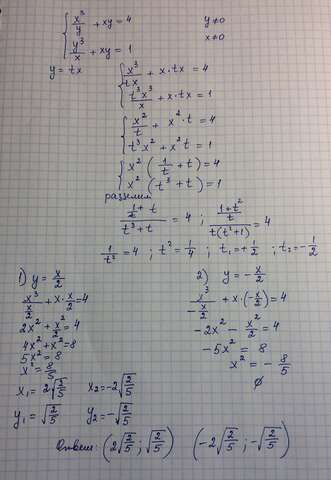 { x³/y + xy = 4    y≠0
{ y³/x + xy = 1    x≠0
y = tx    { x³/tx + x·tx = 4
{ t³x³/x + x·tx = 1
{ x²/t + x²·t = 4
{ t³x² + x²t = 1
{ x²(1/t + t) = 4
{ x²(t³ + t) = 1
разделим
(1/t + t)/(t³ + t) = 4 ; ((1+t²)/t)/(t(t²+1)) = 4
1/t² = 4 ; t² = 1/4 ; t₁ = +1/2 ; t₂ = -1/2
1) y = x/2
x³/(x/2) + x·x/2 = 4
2x² + x²/2 = 4
4x² + x² = 8
5x² = 8
x² = 8/5
x₁ = 2√(2/5)    x₂ = -2√(2/5)
y₁ = √(2/5)    y₂ = -√(2/5)
2) y = -x/2
x³/(-x/2) + x·(-x/2) = 4
-2x² - x²/2 = 4
-5x² = 8
x² = -8/5
∅
Ответ: (2√(2/5) ; √(2/5))    (-2√(2/5) ; -√(2/5))